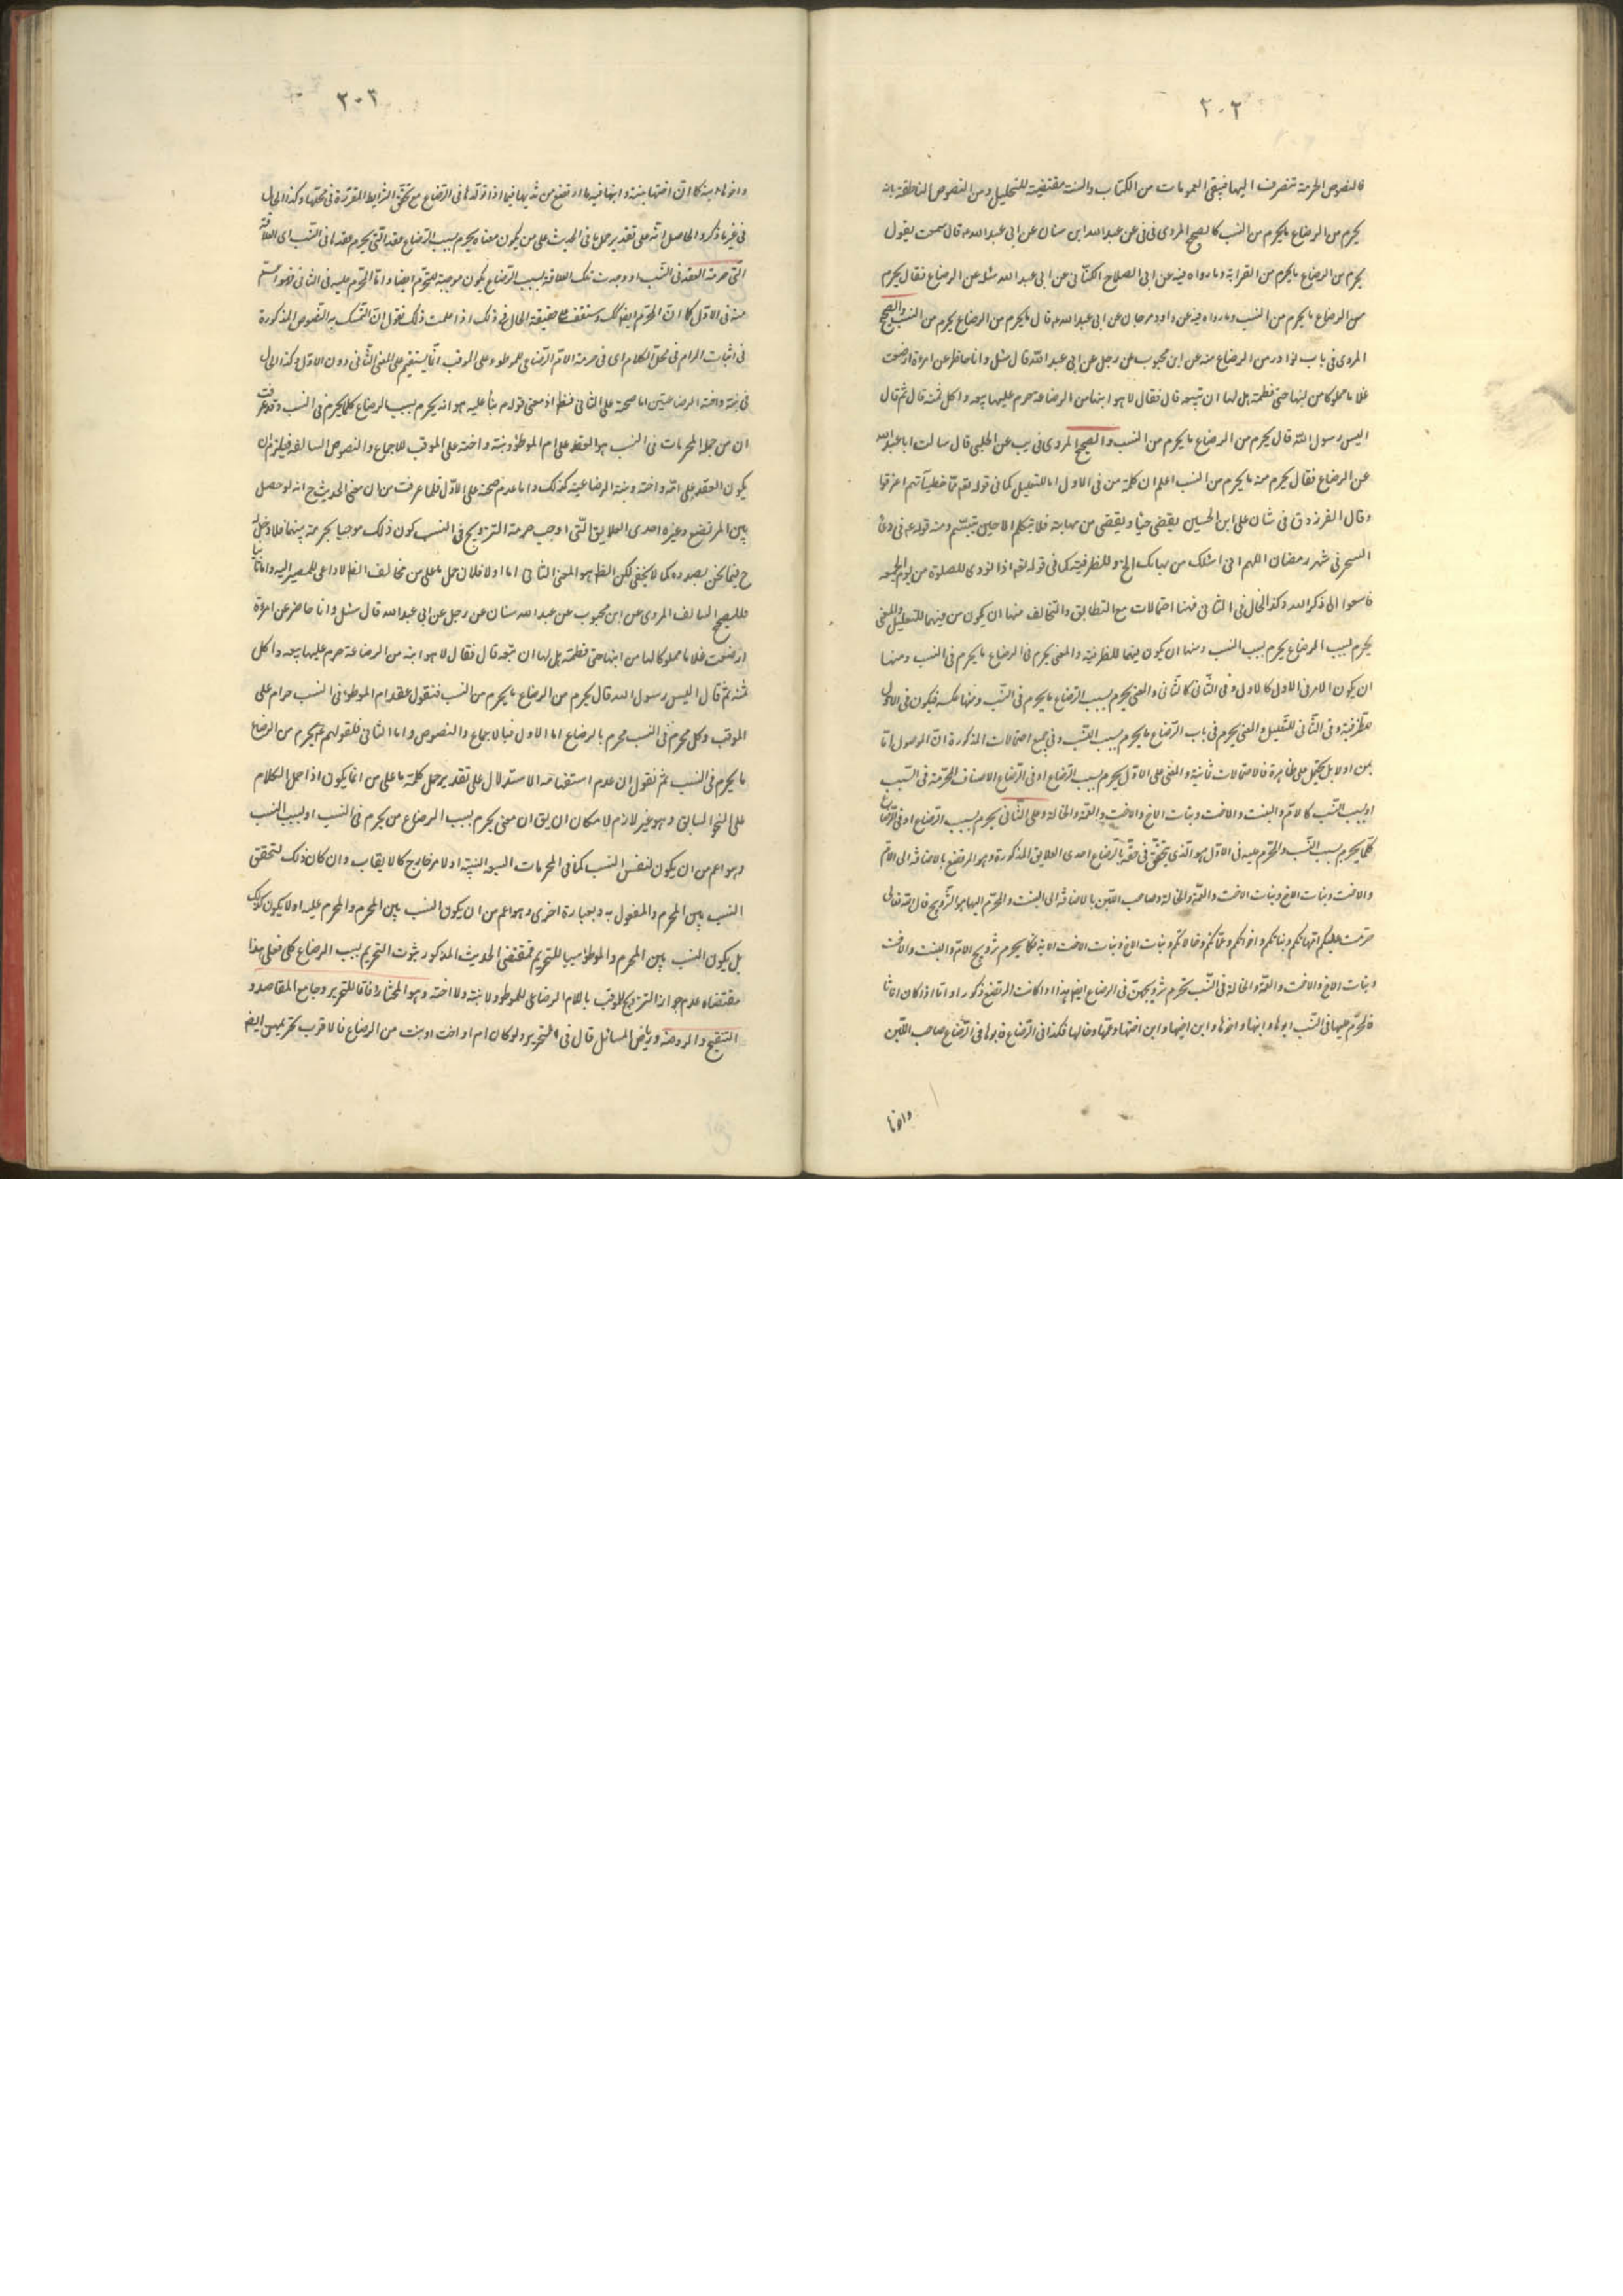 ٢٠٢
فالنصوص الحرمة تنصرف اليها فيبقى العمومات من الكتاب والسنة مقتضية للتحليل ومن النصوص الناطقة بانه
يحرم من الرضاع ما يحرم من النسب كالصحيح المروى فى فى عن عبد الله ابن سنان عن ابى عبد الله قال سمعت يقول
يحرم من الرضاع ما يحرم من القرابة وما رواه فيه عن ابى الصلاح الكنانى عن ابى عبد الله سئل عن الرضاع فقال يحرم
من الرضاع ما يحرم من النسب وما رواه فيه عن داود عن ابى عبد الله قال ما يحرم من الرضاع يحرم من النسب والصحيح
المروى فى باب نوادر من الرضاع منه عن ابن محبوب عن رجل عن ابى عبد الله قال سئل وانا حاضر عن امرءة ارضعت
غلاما مملوكا من لبنها حتى فطمته هل لها ان تبيعه قال فقال لا هو ابنها من الرضاعة حرم عليها بيعه واكل ثمنه قال ثم قال
اليس رسول الله قال يحرم من الرضاع ما يحرم من النسب والصحيح المروى فى يب عن الحلبى قال سالت ابا عبد الله
عن الرضاع فقال يحرم منه ما يحرم من النسب اعلم ان كلمة من فى الاول اما للتعليل كما فى قوله تعم مما خطيئآتهم اغرقوا
وقال الفرزدق فى شان على ابن الحسين يغضى حياء ويغضى من مهابته فلا تكلم الا حين يتبسم ومنه قوله فى دعاء
السحر فى شهر رمضان اللهم انى اسئلك من بهائك الخ او للظرفية كما فى قوله تعم اذا نودى للصلوة من يوم الجمعه
فاسعوا الى ذكر الله وكذا الحال فى الثانى فهنا احتمالات مع التطابق والتخالف منها ان يكون من فيهما للتعليل والمعنى
يحرم بسبب الرضاع ما يحرم بسبب النسب ومنها ان يكون فيهما للظرفية والمعنى يحرم فى الرضاع ما يحرم فى النسب ومنها
ان يكون الامر فى الاول كالاول وفى الثانى كالثانى والمعنى يحرم بسبب الرضاع ما يحرم فى النسب ومنها عكسه فيكون فى الاول
للظرفية وفى الثانى للتعليل والمعنى يحرم فى باب الرضاع ما يحرم بسبب النسب وفى جميع احتمالات المذكورة ان الموصول اما
بمن اولا بل يحتمل على ظاهره فالاحتمالات ثمانية والمعنى على الاول يحرم بسبب الرضاع او فى الرضاع الاصناف المحرمة فى النسب
او بسبب النسب كالام والبنت والاخت وبنات الاخ والاخت والعمة والخالة وعلى الثانى يحرم بسبب الرضاع او فى الرضاع
كلما يحرم بسبب النسب والمحرم عليه فى الاول هو الذى يتحقق فى حقه بالرضاع احدى العلايق المذكورة وهو المرتضع بالاضافة الى الام
والاخت وبنات الاخ وبنات الاخت والعمة والخالة وصاحب اللبن بالاضافة الى البنت والمحرم اليها هو التزويج قال الله تعالى
حرمت عليكم امهاتكم وبناتكم واخواتكم وعماتكم وخالاتكم وبنات الاخ وبنات الاخت الاية فكما يحرم تزويج الام والبنت والاخت
وبنات الاخ والاخت والعمة والخالة فى النسب يحرم تزويجهن فى الرضاع ايضا هذا اذا كانت المرتضع ذكورا واما اذا كان اناثا
فالمحرم عليها فى النسب ابوها وابنها واخوها وابن اخيها وابن اختها وعمها وخالها فكذا فى الرضاع فابوها فى الرضاع صاحب اللبن
واخا
٢٠٣
فى غير ما ذكر والحاصل انه على تقدير حمل ما فى الحديث على من يكون معناه يحرم بسبب الرضاع عقد التى يحرم عقدها فى النسب اى العلاقة
التى حرمت العقد فى النسب لو وجدت تلك العلاقة بسبب الرضاع يكون موجبة للتحريم ايضا واما المحرم عليه فى الثانى فهو اعم
منه فى الاول كما ان المحرم ايضا كك وستقف على حقيقة الحال فى ذلك اذا علمت ذلك نقول ان التمسك بهذه النصوص المذكورة
فى اثبات المرام فى محل الكلام اى فى حرمة الام الرضاعى للموطوء على الموقب انما يستقيم على المعنى الثانى دون الاول وكذا الحال
فى بنته واخته الرضاعيتين اما صحته على الثانى فظ اذ معنى قوله بناء عليه هو انه يحرم بسبب الرضاع كلما يحرم فى النسب وقد عرفت
ان من جملة المحرمات فى النسب هو العقد على ام الموطوء وبنته واخته على الموقب للاجماع والنصوص السالفة فيلزم ان
يكون العقد على امه واخته وبنته الرضاعية كذلك واما عدم صحته على الاول فلما عرفت من ان معنى الحديث ح انه لو حصل
بين المرتضع وغيره احدى العلايق التى اوجب حرمة التزويج فى النسب كون ذلك موجبا لحرمته بينهما فلا دخل له
ح فيما نحن بصدده كما لا يخفى لكن الظ هو المعنى الثانى اما اولا فلان حمل ما على من مخالف الظ لا داعى للمصير اليه واما ثانيا
فللصحيح السالف المروى عن ابن محبوب عن عبد الله سنان عن رجل عن ابى عبد الله قال سئل وانا حاضر عن امرءة
ارضعت غلاما مملوكا لها من لبنها حتى فطمته هل لها ان تبيعه قال فقال لا هو ابنه من الرضاعة حرم عليها بيعه واكل
ثمنه ثم قال اليس رسول الله قال يحرم من الرضاع ما يحرم من النسب فنقول عقد ام الموطوء فى النسب حرام على
الموقب وكل محرم فى النسب محرم بالرضاع اما الاول فبالاجماع والنصوص واما الثانى فلقولهم يحرم من الرضاع
ما يحرم فى النسب ثم نقول ان عدم استقامة الاستدلال على تقدير حمل كلمة ما على من انما يكون اذا حمل الكلام
على النهج السابق وهو غير لازم لامكان ان يق ان معنى يحرم بسبب الرضاع من يحرم فى النسب او بسبب النسب
وهو اعم من ان يكون لنفس النسب كما فى المحرمات السبعه النسبية او لامر خارج كالايقاب وان كان ذلك لتحقق
النسب بين المحرم والمفعول به وبعبارة اخرى وهو اعم من ان يكون النسب بين المحرم والمحرم عليه او لا يكون كذلك
بل يكون النسب بين المحرم والموطوء سببا للتحريم فمقتضى الحديث المذكور ثبوت التحريم بسبب الرضاع كلى فعلى هذا
مقتضاه عدم جواز التزويج للموقب بالام الرضاعى للموطوء ولا بنته ولا اخته وهو المختار وفاقا للتحرير وجامع المقاصد و
التنقيح والروضة ورياض المسائل قال فى التحرير ولو كان ام او اخت او بنت من الرضاع فالاقرب تحريمهن ايضا